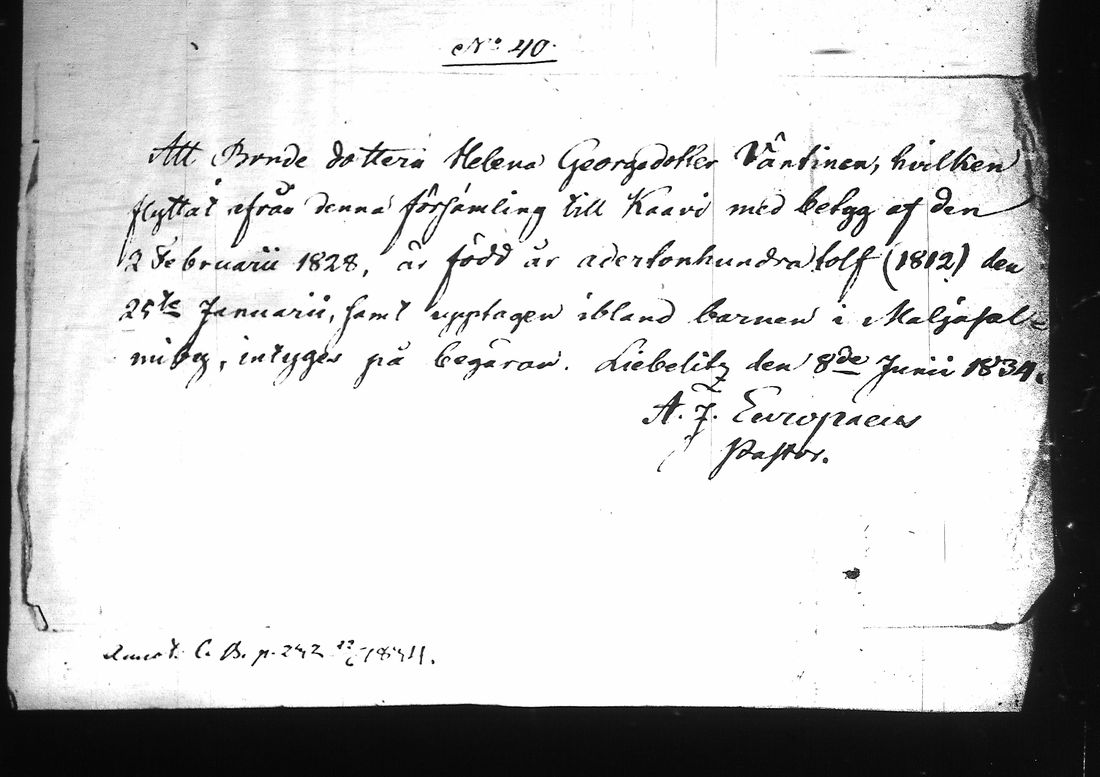 No 40.
Att Bonde dottern Helena Georgsdotter Väntinen, hvilken
flyttat ifrån denna församling till Kaavi med betyg af den
2 Februarii 1828, är född år adertonhundratolf (1812) den
25te Januarii, samt upptagen ibland barnen i Maljasal=
miby, intyges på begäran. Liebelitz den 8de Junii 1834.
A. J. Europaeus
Pastor.
Annot. C. B. p. 242